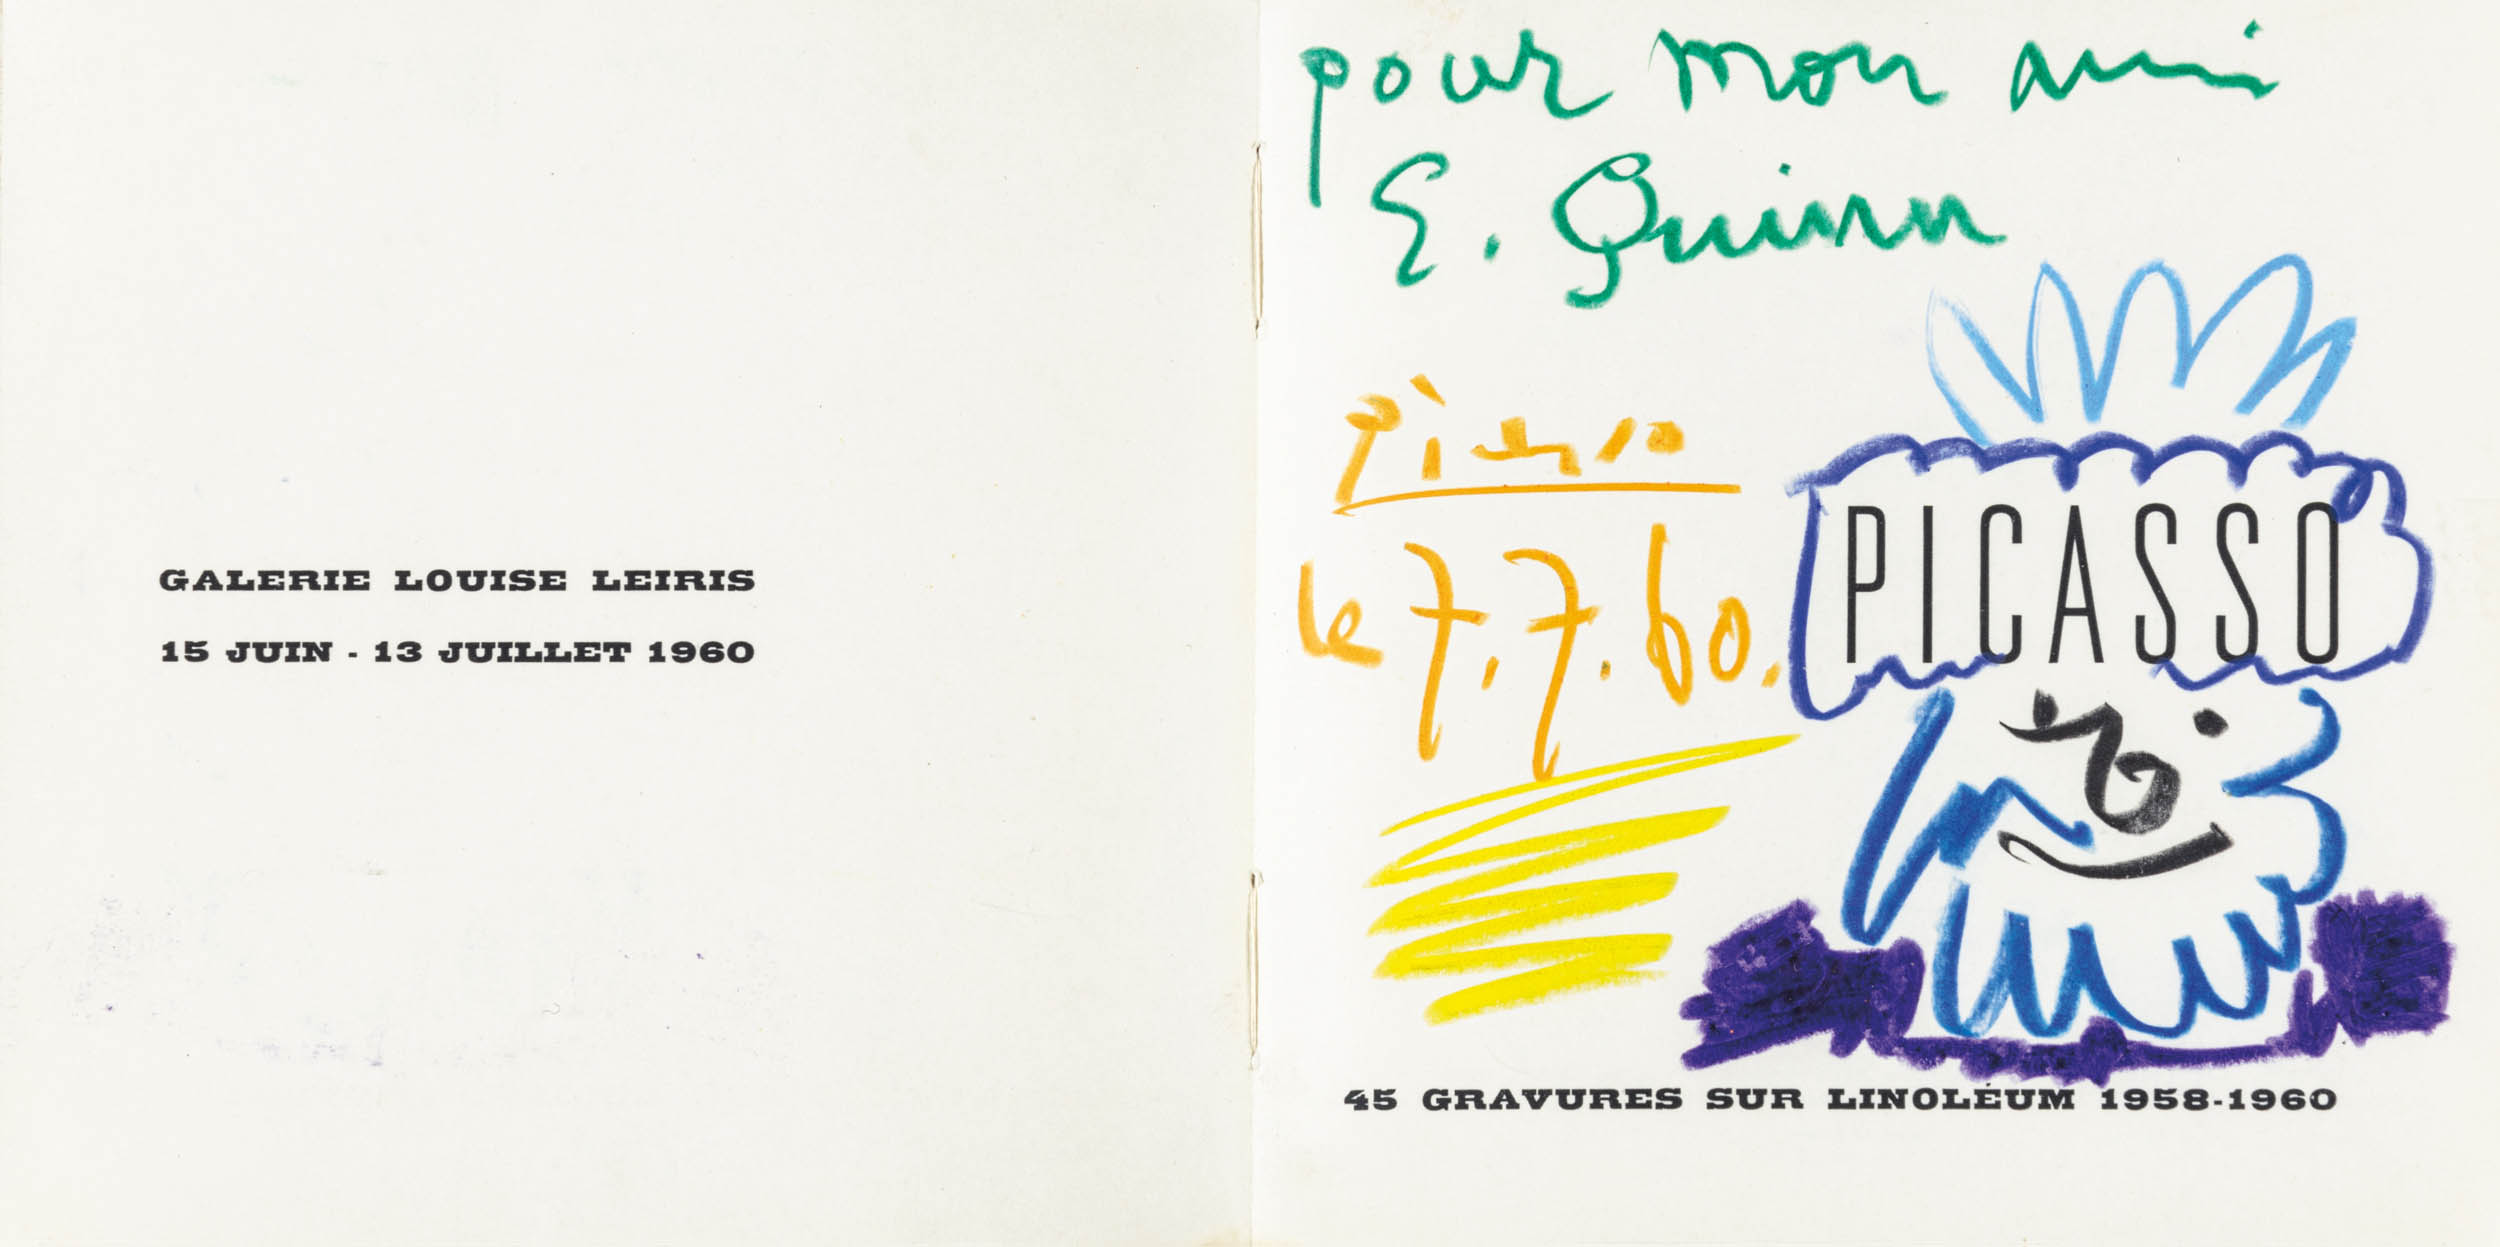 GALERIE LOUISE LEIRIS
15 JUIN - 13 JUILLET 1960
pour mon ami
E. Quinn
Picasso
le 7.7.60.
PICASSO
45 GRAVURES SUR LINOLÉUM 1958-1960